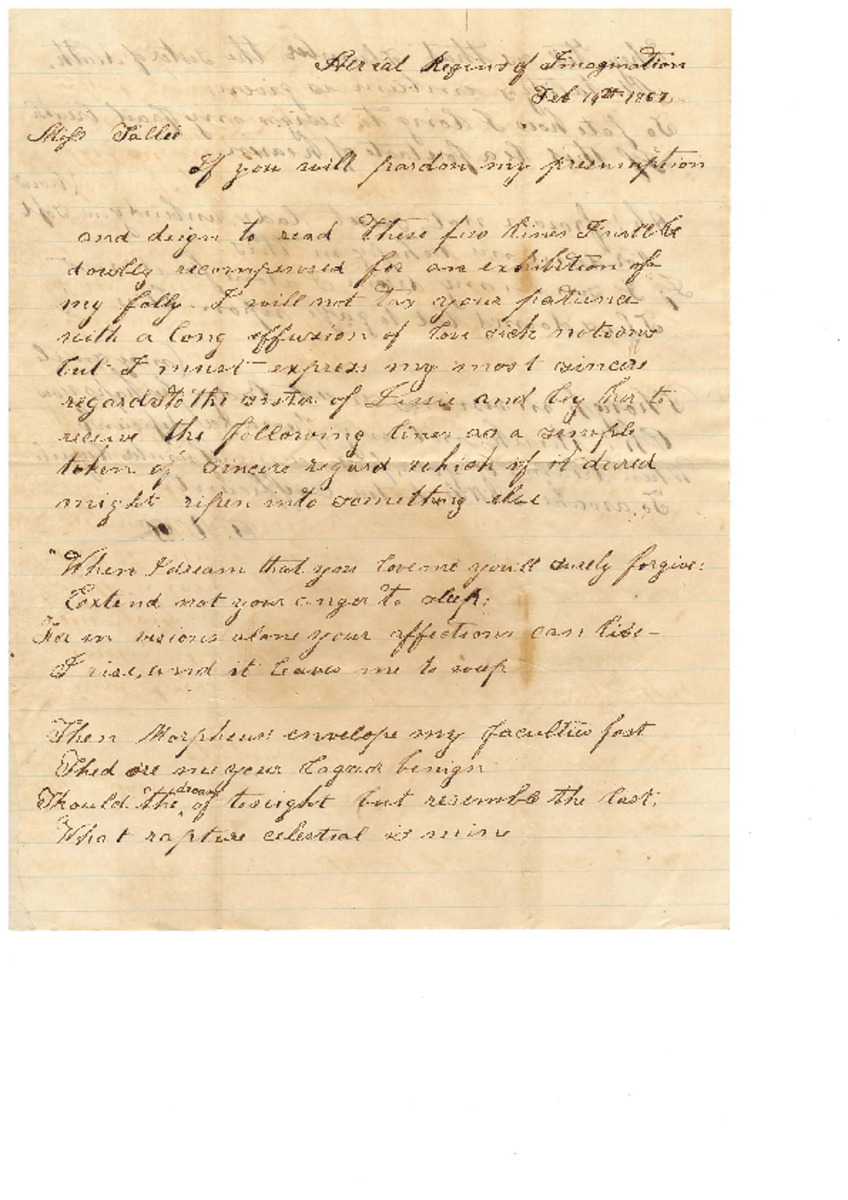 Aerial Regions of Imagination
Feb 14th 1867
Miss Sallie
If you will pardon my presumption
and deign to read these few lines I will be
doubly recompensed for an exhibition of
my folly. I will not tax your patience
with a long effusion of love sick notions
but I must express my most sincere
regards to the sister of and beg her to
receive the following lines as a simple
token of sincere regard which if it dared
might ripen into something else
"When I dream that you love me you'll surely forgive:
Extend not your anger to sleep;
For in visions alone your affections can live–
I rise, and it leaves me to weep
Then Morpheus envelope my faculties fast
Shed ore me your languor benign
Should the dream of tonight but resemble the last,
What rapture celestial is mine